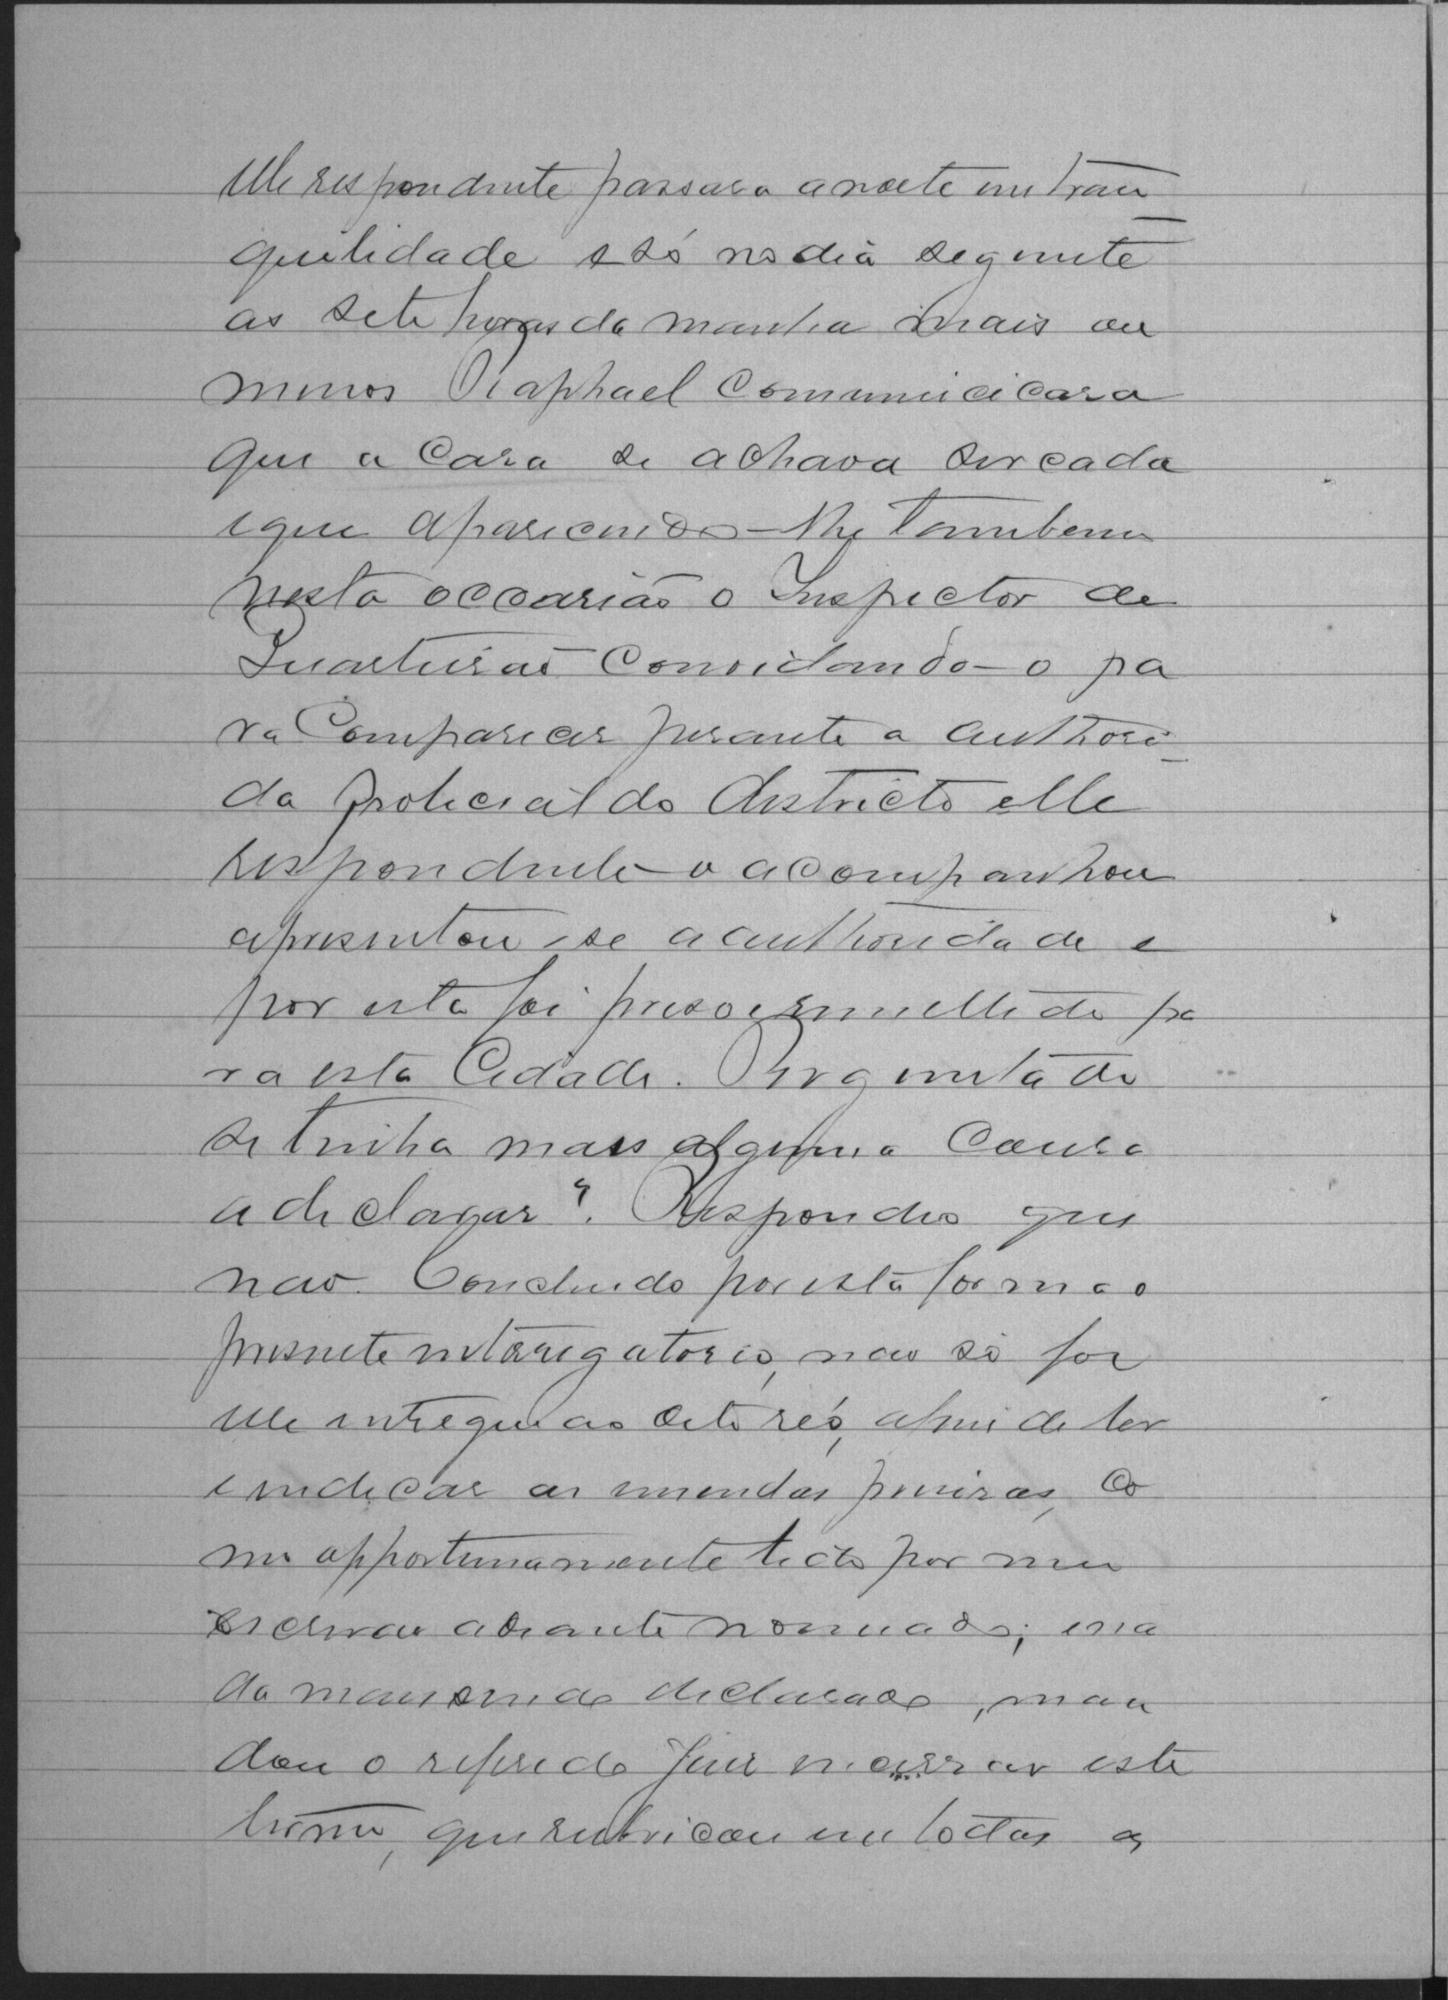 elle respondente passara a noite em tran
quilidade e só no dia seguinte
as sete horas da manha mais ou
menos Raphael comunicicara
que a casa se achava sercada
e que aparecendo-lhe tambem
nesta occasião o Inspector de
Quarteirão convidando-o pa
ra comparecer perante a authori-
da policial do districto elle
respondente o acompanhou
apresentou-se a authoridade e
por esta foi preso e remettido pa
ra esta Cidade. Perguntado
se tinha mais alguma cousa
a declarar? Respondeo que
não. Concluido por esta forma o
presente interrogatorio, nao só foi
elle entregue ao dito réo, afim de ler
e indicar as emendas precisas, co
mo opportunamente lido por meu
escrivão adiante nomeado; e na
da mais sendo declarado, man
dou o referido Juiz encerrar este
termo, que rubricou em todas as